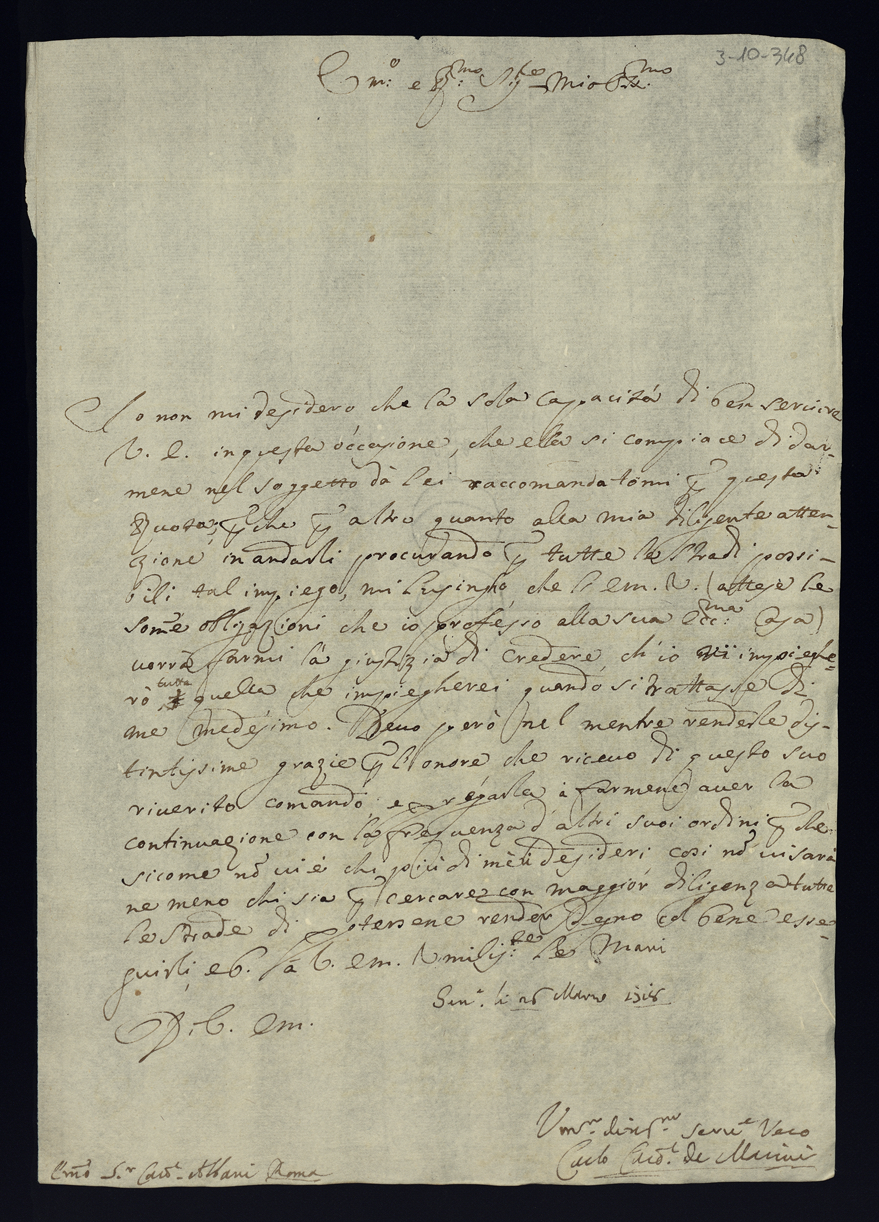 3-10-348
Em:o e R:mo Sig:re Mio Oss:mo
Io non mi desidero che la sola Cappacitá di ben seruire
V. E. in questa occasione, che ella si compiace di dar-
mene nel soggetto dà lei raccomandatomi p questa
Ruota; p che p altro quanto alla mia diligente atten-
zione in andarli procurando p tutte le stradi possi-
bili tal impiego, mi lusingho che l' em. V. (attese le
som̃e obligazioni che io professo alla sua Ecc:ma Casa)
uorrà farmi la giustizia di credere, ch' io ui impieghe-
rò tutta quella che impiegherei quando si trattasse di
me medesimo. Deuo però nel mentre renderle dis-
tintissime grazie p l' onore che riceuo di questo suo
riuerito comando, e pregarla à farmene auer la
continuazione con la frequenza d' altri suoi ordini p che
sicome nõ ui è chi più di mè li desideri cosi nõ ui sarà
ne meno chi sia p cercare con maggior diligenza tutte
le strade di potersene render degno col bene esse-
guirli, e b. à V. em. Umiliss:te le Mani
Di V. Em.
li 28 Marzo
seru:e Vero
Carlo Card:l de Marini
Em̃o S:r Card:l Albani Roma